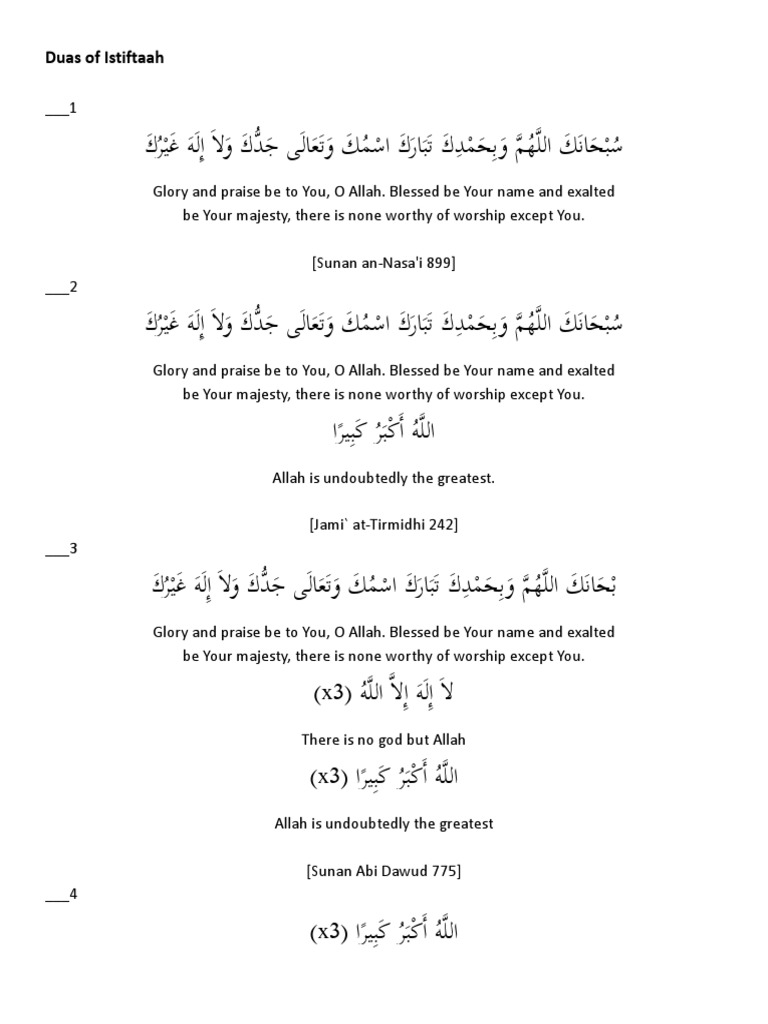 Duas of Istiftaah
___1
سُبْحَانَكَ اللَّهُمَّ وَبِحَمْدِكَ تَبَارَكَ اسْمُكَ وَتَعَالَى جَدُّكَ وَلاَ إِلَهَ غَيْرُكَ
Glory and praise be to You, O Allah. Blessed be Your name and exalted
be Your majesty, there is none worthy of worship except You.
[Sunan an-Nasa'i 899]
___2
سُبْحَانَكَ اللَّهُمَّ وَبِحَمْدِكَ تَبَارَكَ اسْمُكَ وَتَعَالَى جَدُّكَ وَلاَ إِلَهَ غَيْرُكَ
Glory and praise be to You, O Allah. Blessed be Your name and exalted
be Your majesty, there is none worthy of worship except You.
اللَّهُ أَكْبَرُ كَبِيرًا
Allah is undoubtedly the greatest.
[Jami` at-Tirmidhi 242]
___3
بْحَانَكَ اللَّهُمَّ وَبِحَمْدِكَ تَبَارَكَ اسْمُكَ وَتَعَالَى جَدُّكَ وَلاَ إِلَهَ غَيْرُكَ
Glory and praise be to You, O Allah. Blessed be Your name and exalted
be Your majesty, there is none worthy of worship except You.
لاَ إِلَهَ إِلاَّ اللَّهُ (x3)
There is no god but Allah
اللَّهُ أَكْبَرُ كَبِيرًا (x3)
Allah is undoubtedly the greatest
[Sunan Abi Dawud 775]
___4
اللَّهُ أَكْبَرُ كَبِيرًا (x3)